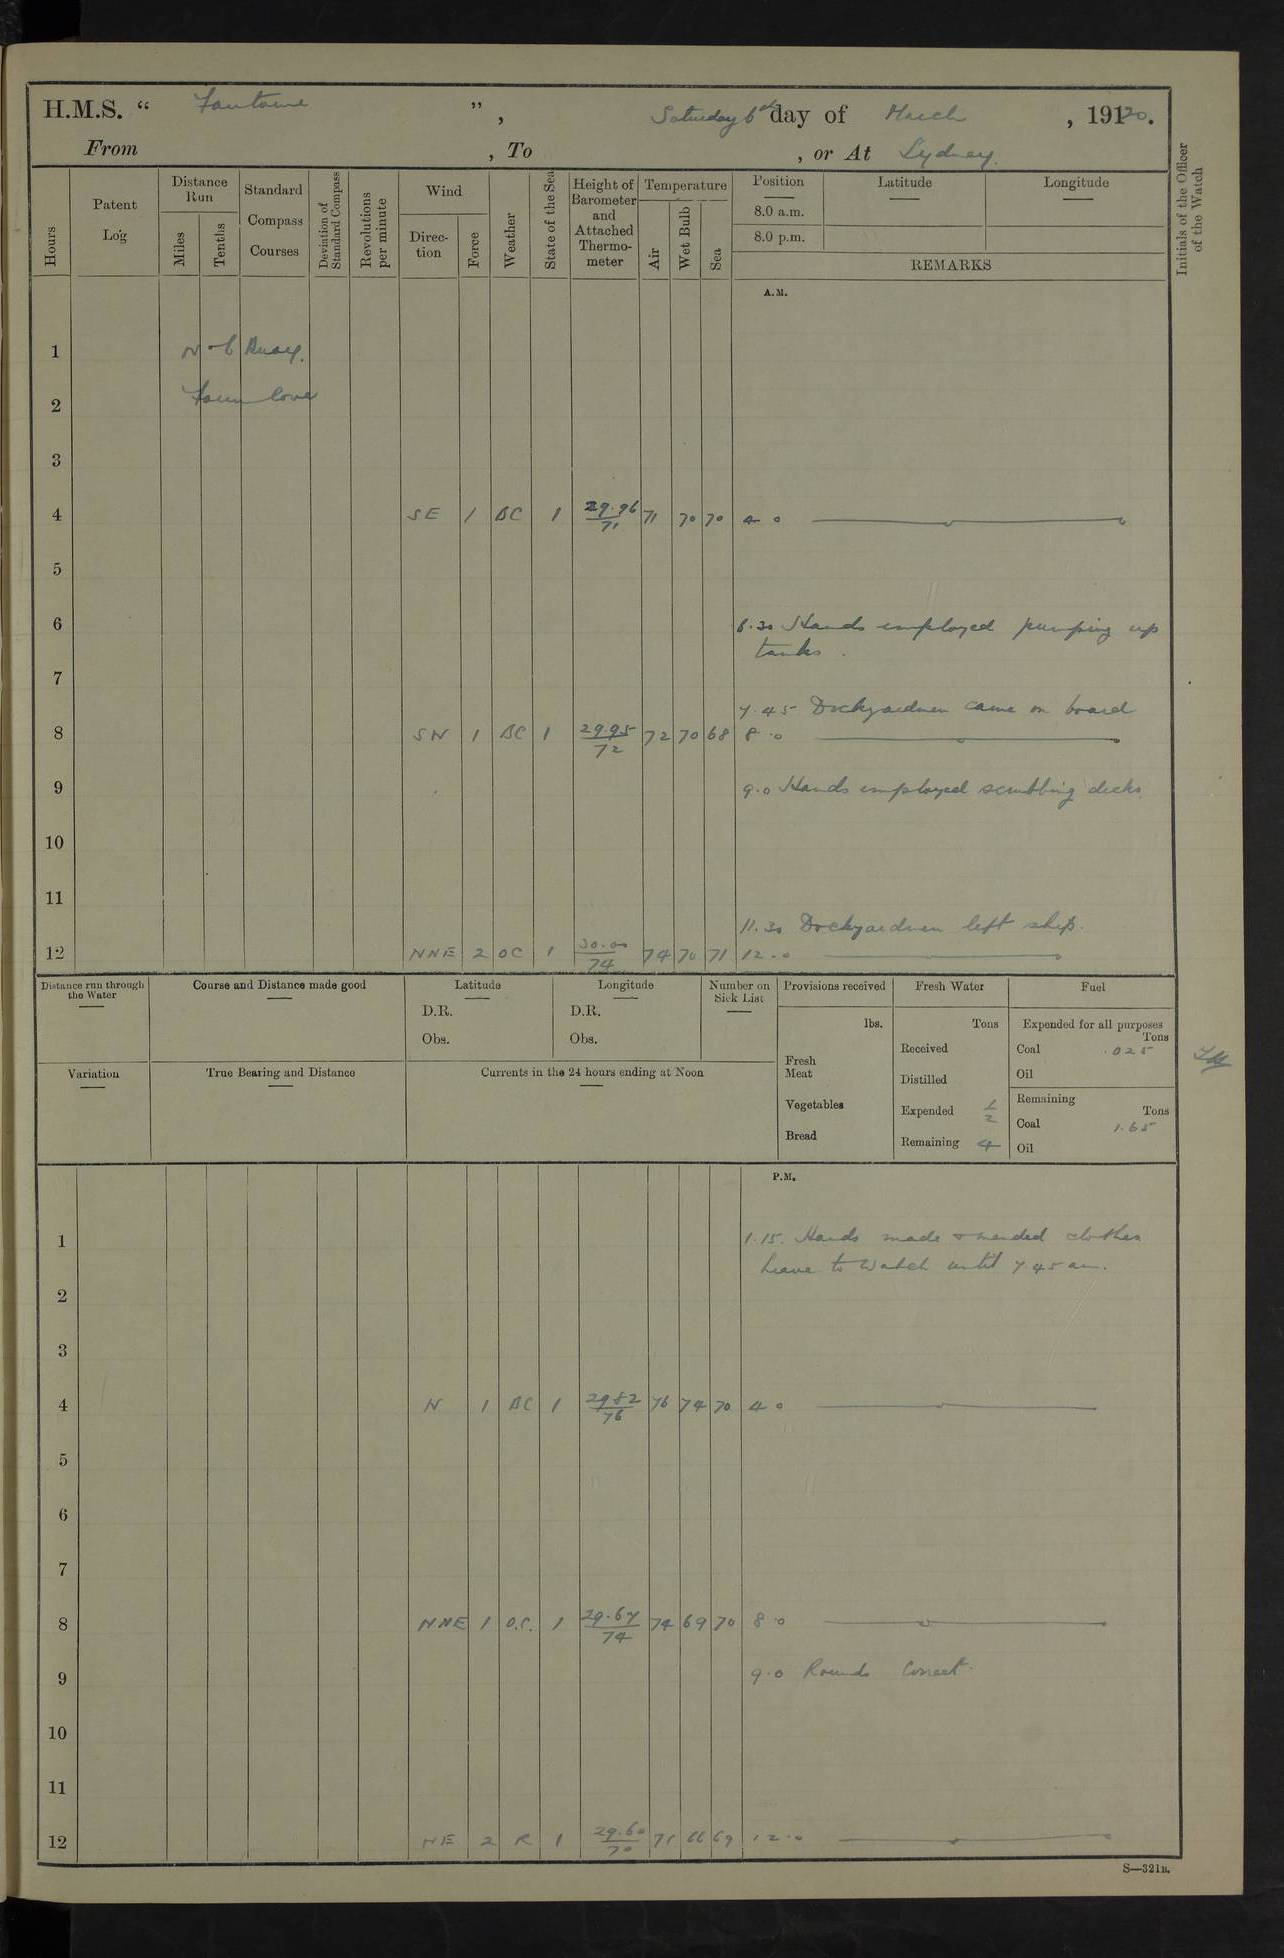 H.M.S. “ Fantome ”, Saturday 6th day of March, 19120.
From , To , or At Sydney.
Hours
Patent Log
Distance Run
Miles
Tenths
Standard Compass Courses
Deviation of Standard Compass
Revolutions per minute
Wind
Direction
Force
Weather
State of the Sea
Height of Barometer and Attached Thermometer
Temperature
Air
Wet Bulb
Sea
Position
8.0 a.m.
8.0 p.m.
Latitude
Longitude
REMARKS
Initials of the Officer of the Watch
A.M.
1 No 6 Buoy.
2 Farm Cove
3
4 SE 1 BC 1 29.96/71 71 70 70 4 0
5
6 6.30 Hands employed pumping up
tanks.
7
7.45 Dockyardmen came on board
8 SW 1 BC 1 29.95/72 72 70 68 8.0
9 9.0 Hands employed scrubbing decks.
10
11
11.30 Dockyardmen left ship.
12 NNE 2 OC 1 30.00/74 74 70 71 12.0
Distance run through the Water
Course and Distance made good
Latitude
D.R.
Obs.
Longitude
D.R.
Obs.
Number on Sick List
Provisions received
lbs.
Fresh Meat
Vegetables
Bread
Fresh Water
Tons
Received
Distilled
Expended 1/2
Remaining 4
Fuel
Expended for all purposes
Tons
Coal .025
Oil
Remaining
Tons
Coal 1.65
Oil
Variation
True Bearing and Distance
Currents in the 24 hours ending at Noon
P.M.
1 1.15. Hands made & mended clothes
Leave to Watch until 7 45 am.
2
3
4 N 1 BC 1 2982/76 76 74 70 4 0
5
6
7
8 NNE 1 O.C. 1 29.67/74 74 69 70 8.0
9 9.0 Rounds Correct.
10
11
12 NE 2 R 1 29.60/70 71 66 69 12.0
S—321B.